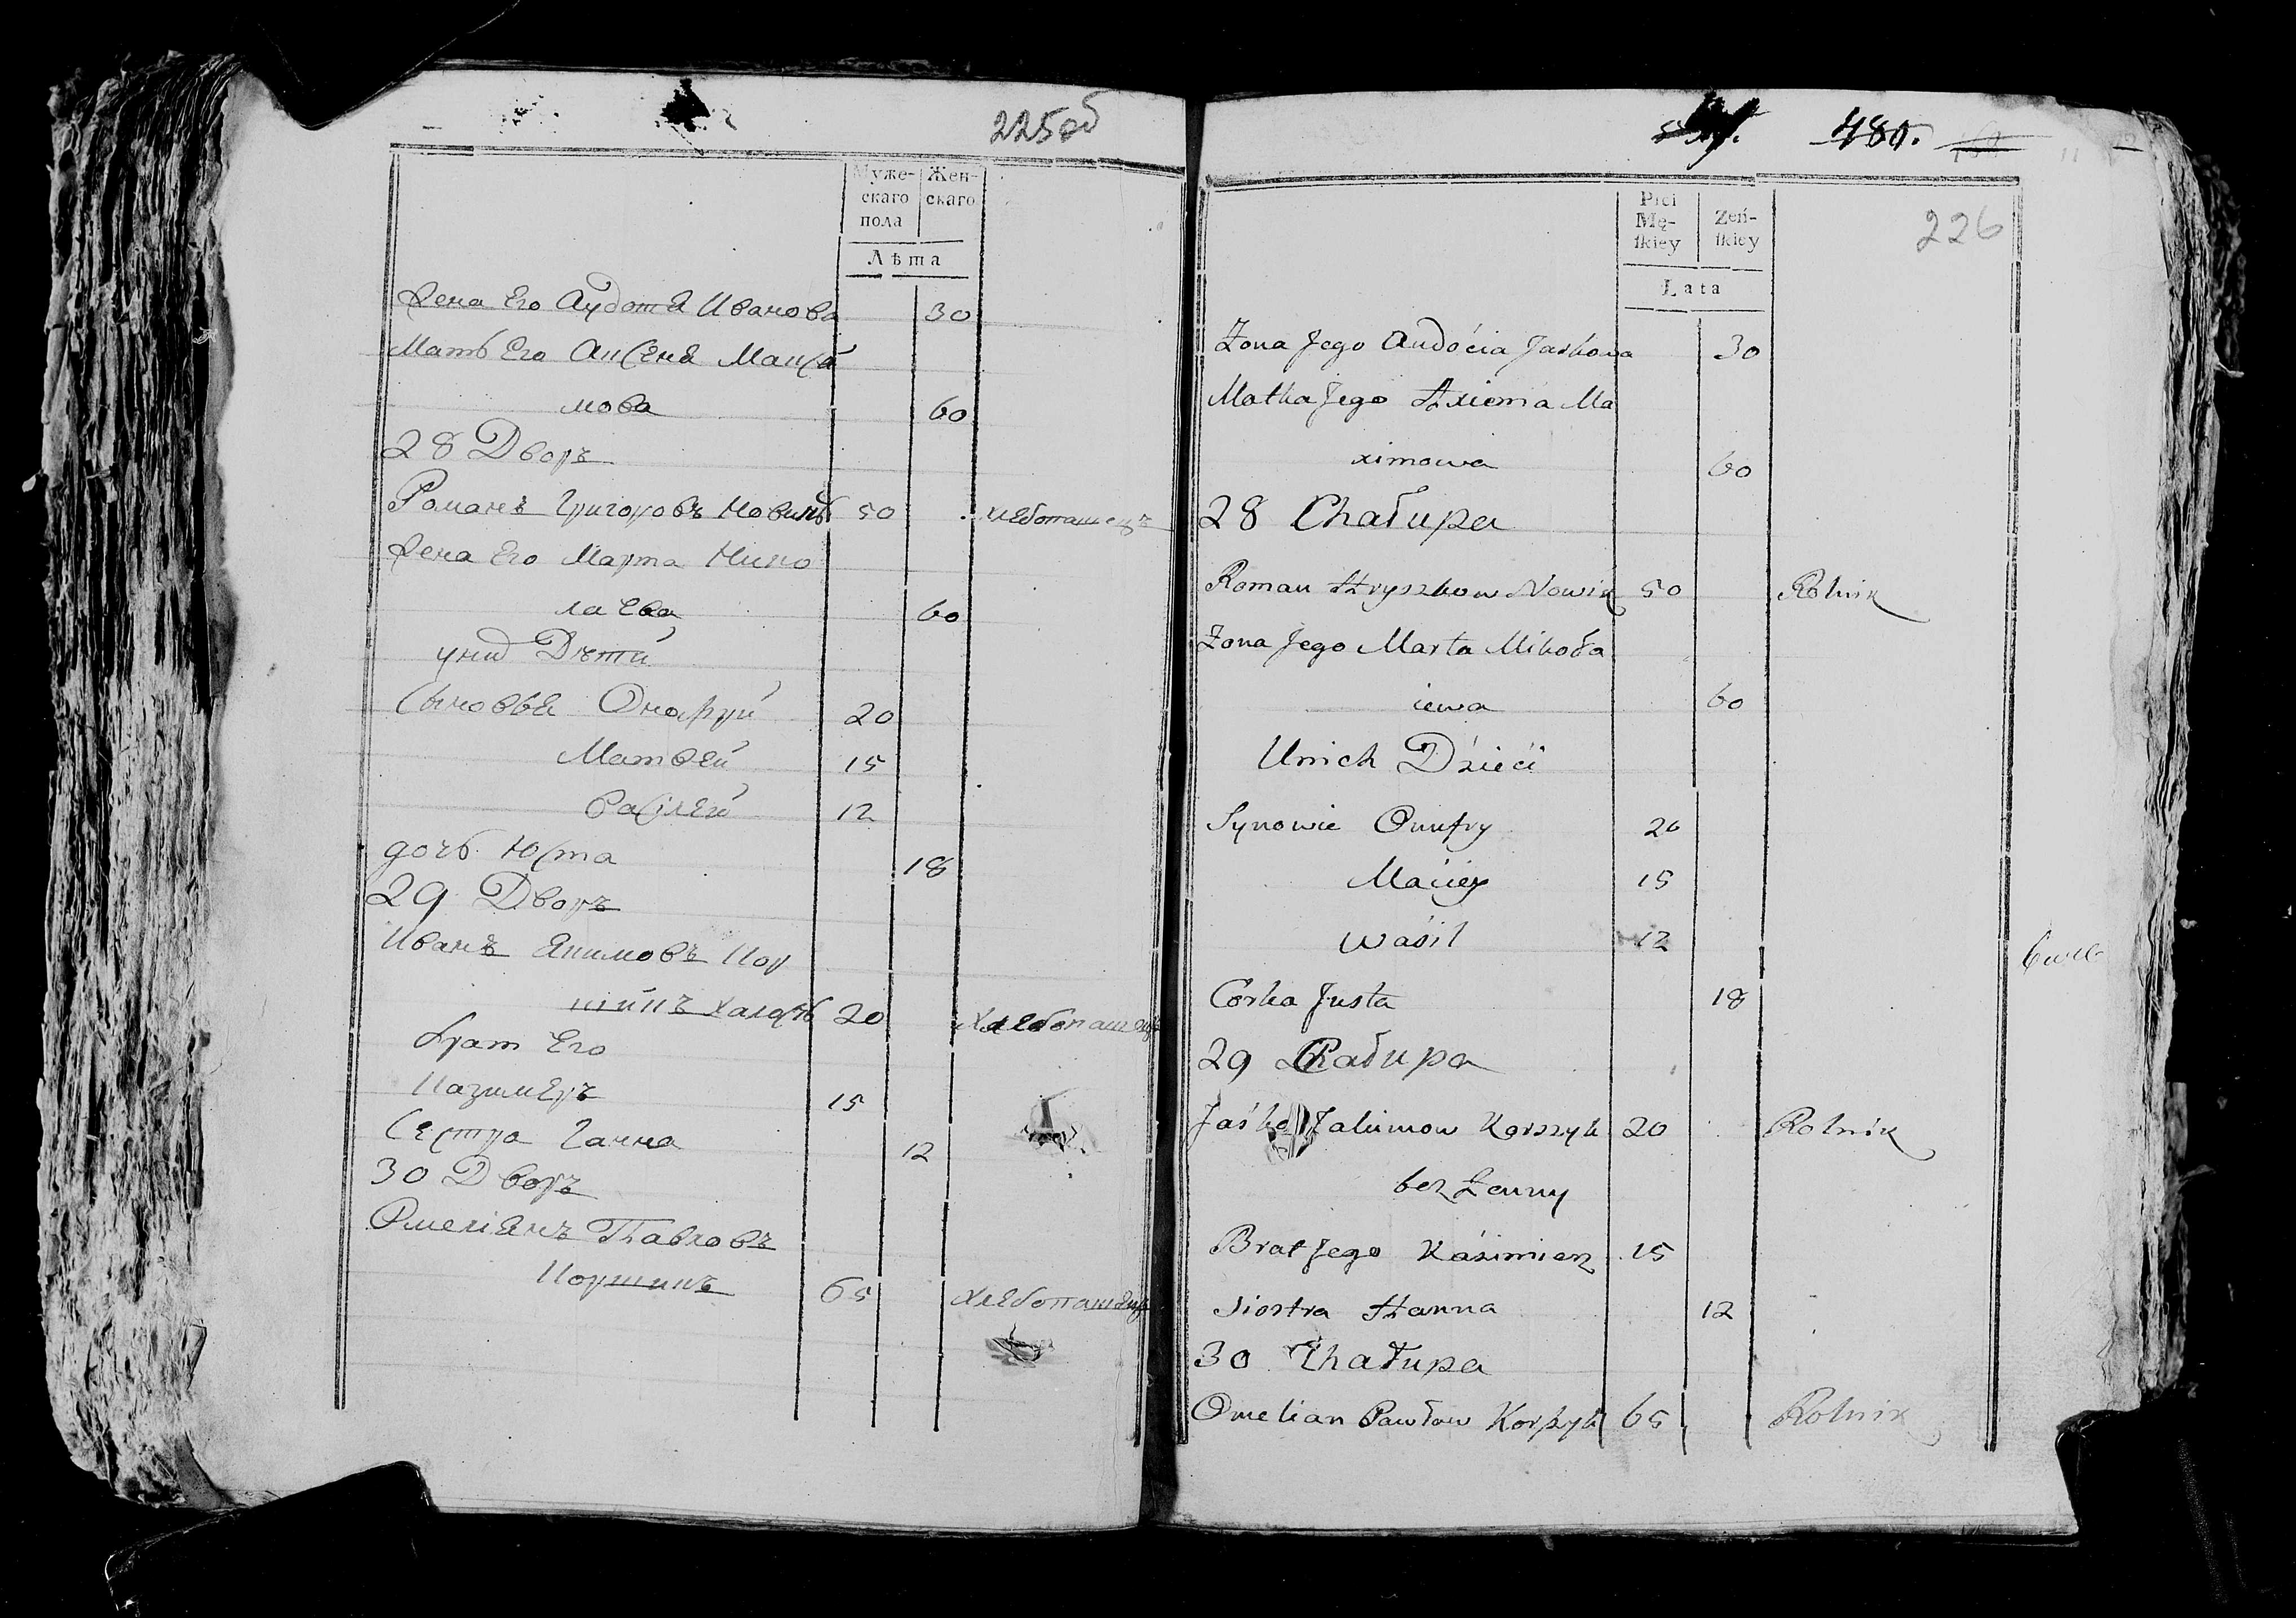 225об
Муже-
скаго
пола
Жен-
скаго
Лѣта
Жена Его Аудотя Иванова 30
Мать Его Аксеня Макси
мова 60
28 Дворъ
Романъ Григоровъ Новикъ 50 хлебопашецъ
Жена Его Марта Нико
лаева 60
унид Дѣти
Сыновья Онафрий 20
Матвей 15
Василей 12
дочь Юста 18
29 Дворъ
Иванъ Якимовъ Кор
шикъ халостъ 20 хлебопашецъ
Брат Его
Казимеръ 15
Сестра Ганна 12
30 Дворъ
Омелiянъ Павловъ
Коршикъ 65 хлебопашецъ
480.
226
Płci
Mę-
ſkiey
Zeń-
ſkiey
Lata
Żona Jego Audócia Jaskowa 30
Matka Jego Axienia Ma
ximowa 60
28 Chałupa
Roman Hryszkow Nowik 50 Rolnik
Żona Jego Marta Mikoła
iewa 60
Unich Dzieći
Synowie Onufry 20
Maciey 15
Waśil 12
Corka Justa 18
29 Chałupa
Jaśko Jakimow Korszyk 20 Rolnik
bez Żenny
Brat Jego Kaśimierz 15
Siostra Hanna 12
30 Chałupa
Omelian Pawłow Korszyk 65 Rolnik